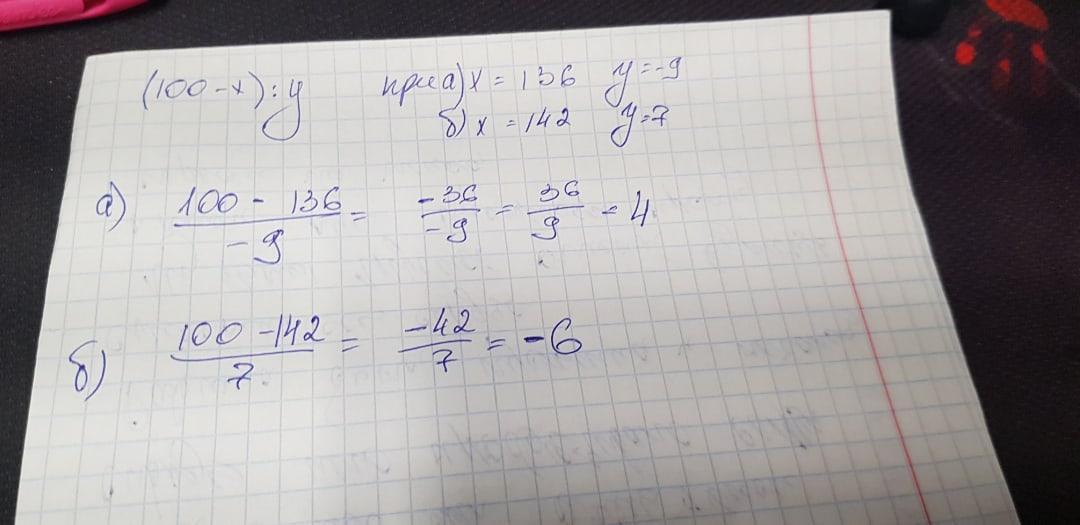 (100-x):y при а) x = 136 y=-9
б) x = 142 y=7
а) \frac{100 - 136}{-9} = \frac{-36}{-9} = \frac{36}{9} = 4
б) \frac{100 - 142}{7} = \frac{-42}{7} = -6